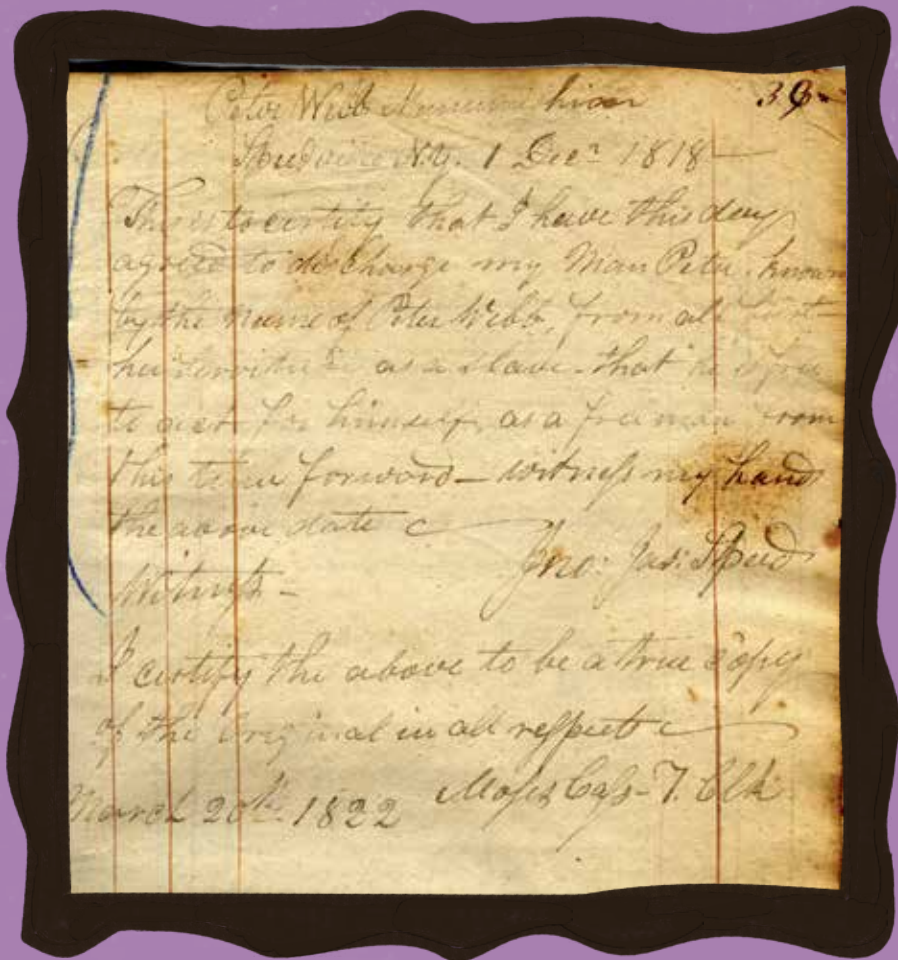 Peter Webb Manumission 39
Speedsville N.Y. 1 Decr 1818
This is to certify that I have this day
agreed to discharge my Man Peter, known
by the name of Peter Webb, from all
as a Slave - that he is free
to act for himself, as a free man from
this time forward - witness my hand
the above date
Jno: Jas: Speed
Witness -
I certify the above to be a true Copy
of the Original in all respects
March 20th. 1822 Moses Cass - T. Clk